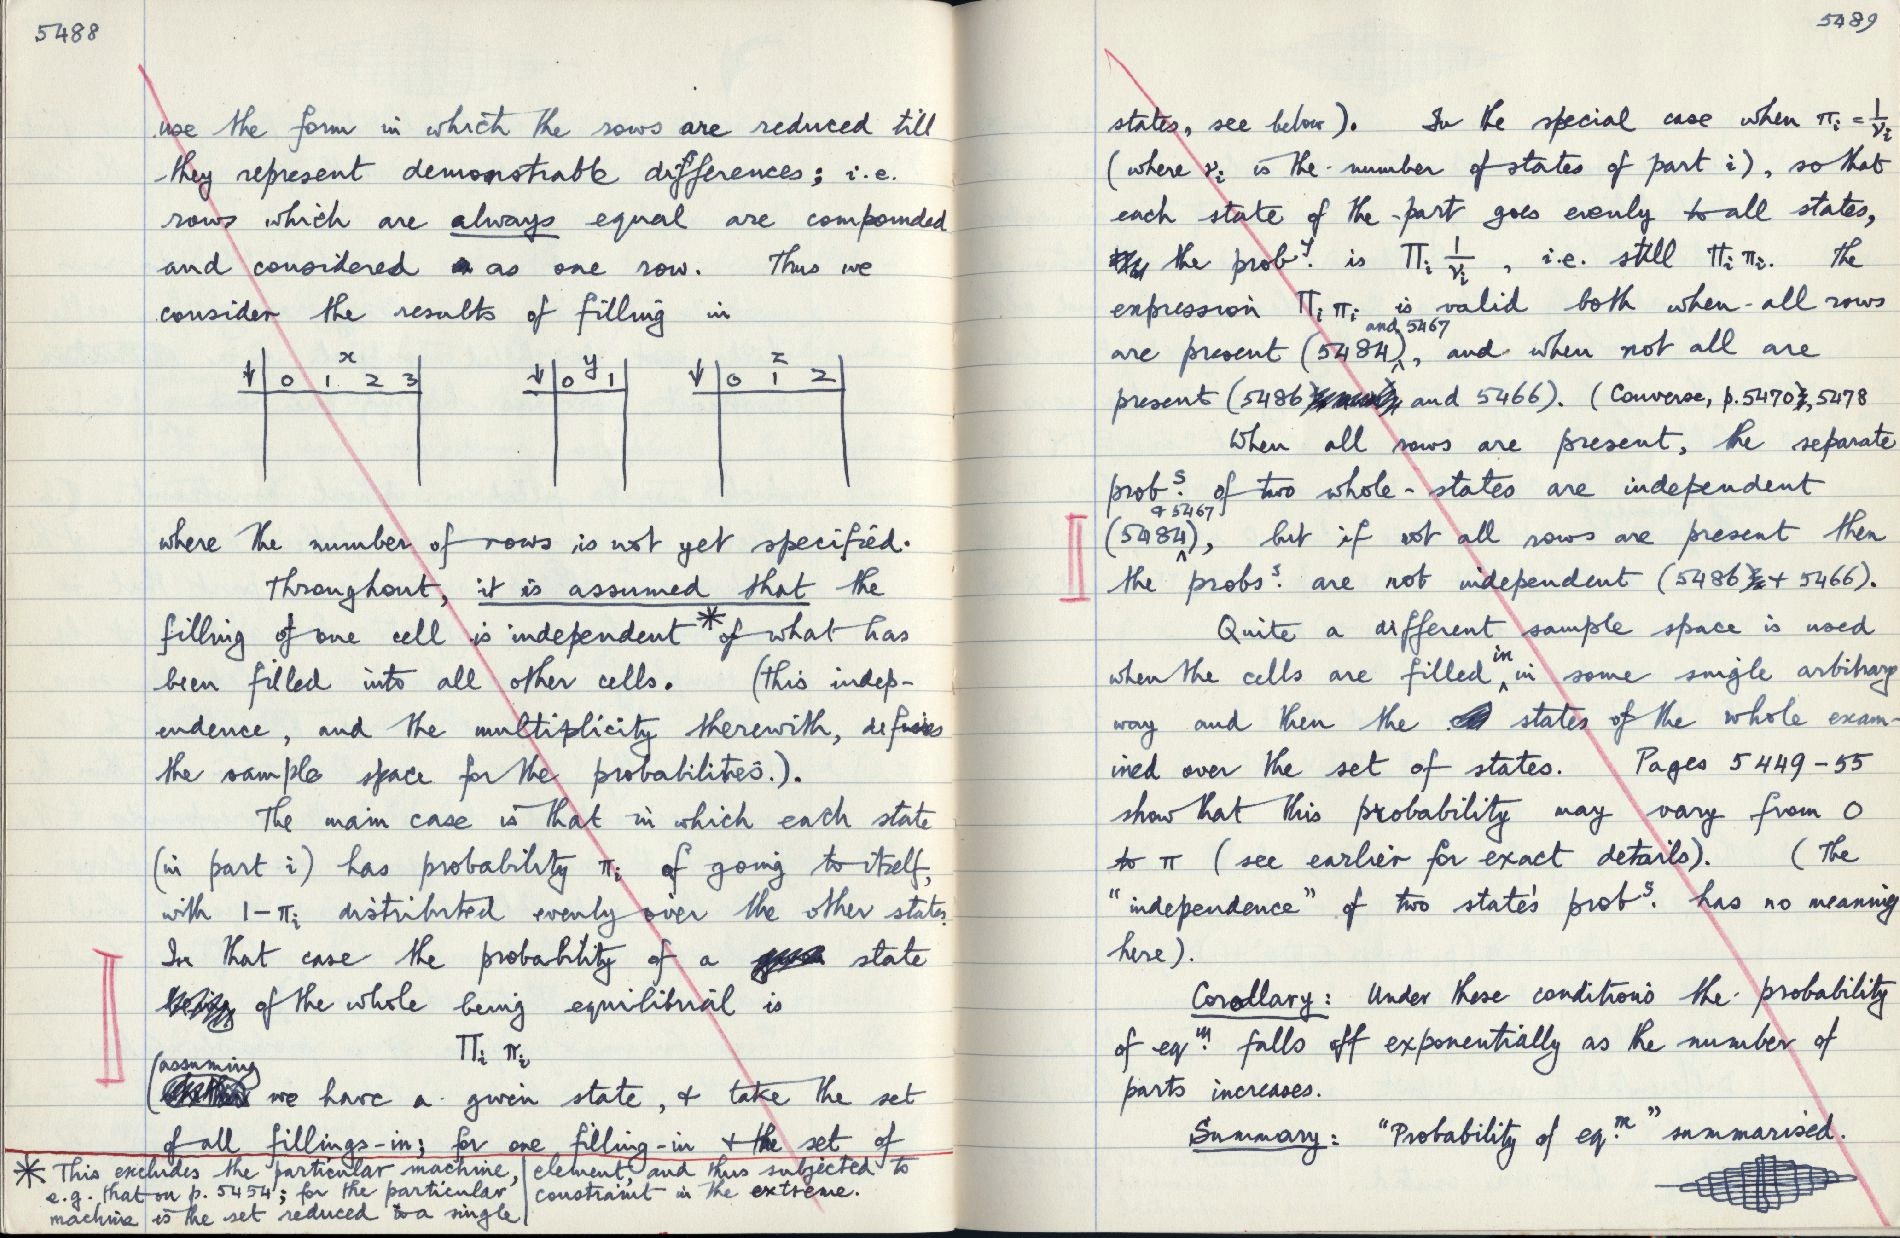 5488
use the form in which the rows are reduced till
they represent demonstrable differences; i.e.
rows which are always equal are compounded
and considered as one row. Thus we
consider the results of filling in
x
↓ 0 1 2 3
y
↓ 0 1
z
↓ 0 1 2
where the number of rows is not yet specified.
Throughout, it is assumed that the
filling of one cell is independent * of what has
been filled into all other cells. (this indep-
endence, and the multiplicity therewith, defines
the sample space for the probabilities.).
The main case is that in which each state
(in part i) has probability πi of going to itself,
with 1-πi distributed evenly over the other states.
In that case the probability of a state
of the whole being equilibrial is
Πi πi
(assuming
we have a given state, & take the set
of all fillings-in; for one filling-in & the set of
* This excludes the particular machine,
e.g. that on p. 5454; for the particular
machine is the set reduced to a single
element, and thus subjected to
constraint in the extreme.
5489
states, see below). In the special case when πi = 1/νi
(where νi is the number of states of part i), so that
each state of the part goes evenly to all states,
the proby. is Πi 1/νi, i.e. still Πi πi. The
expression Πi πi is valid both when all rows
and 5467
are present (5484)‸, and when not all are
present (5486 and 5466). (Converse, p.5470, 5478
When all rows are present, the separate
probs. of two whole-states are independent
& 5467
(5484‸), but if not all rows are present then
the probs. are not independent (5486 + 5466).
Quite a different sample space is used
in
when the cells are filled‸in some single arbitrary
way and then the states of the whole exam-
ined over the set of states. Pages 5449-55
show that this probability may vary from 0
to π (see earlier for exact details). (The
"independence" of two state's probs. has no meaning
here).
Corollary: Under these conditions the probability
of eqm. falls off exponentially as the number of
parts increases.
Summary: "Probability of eq.m" summarised.